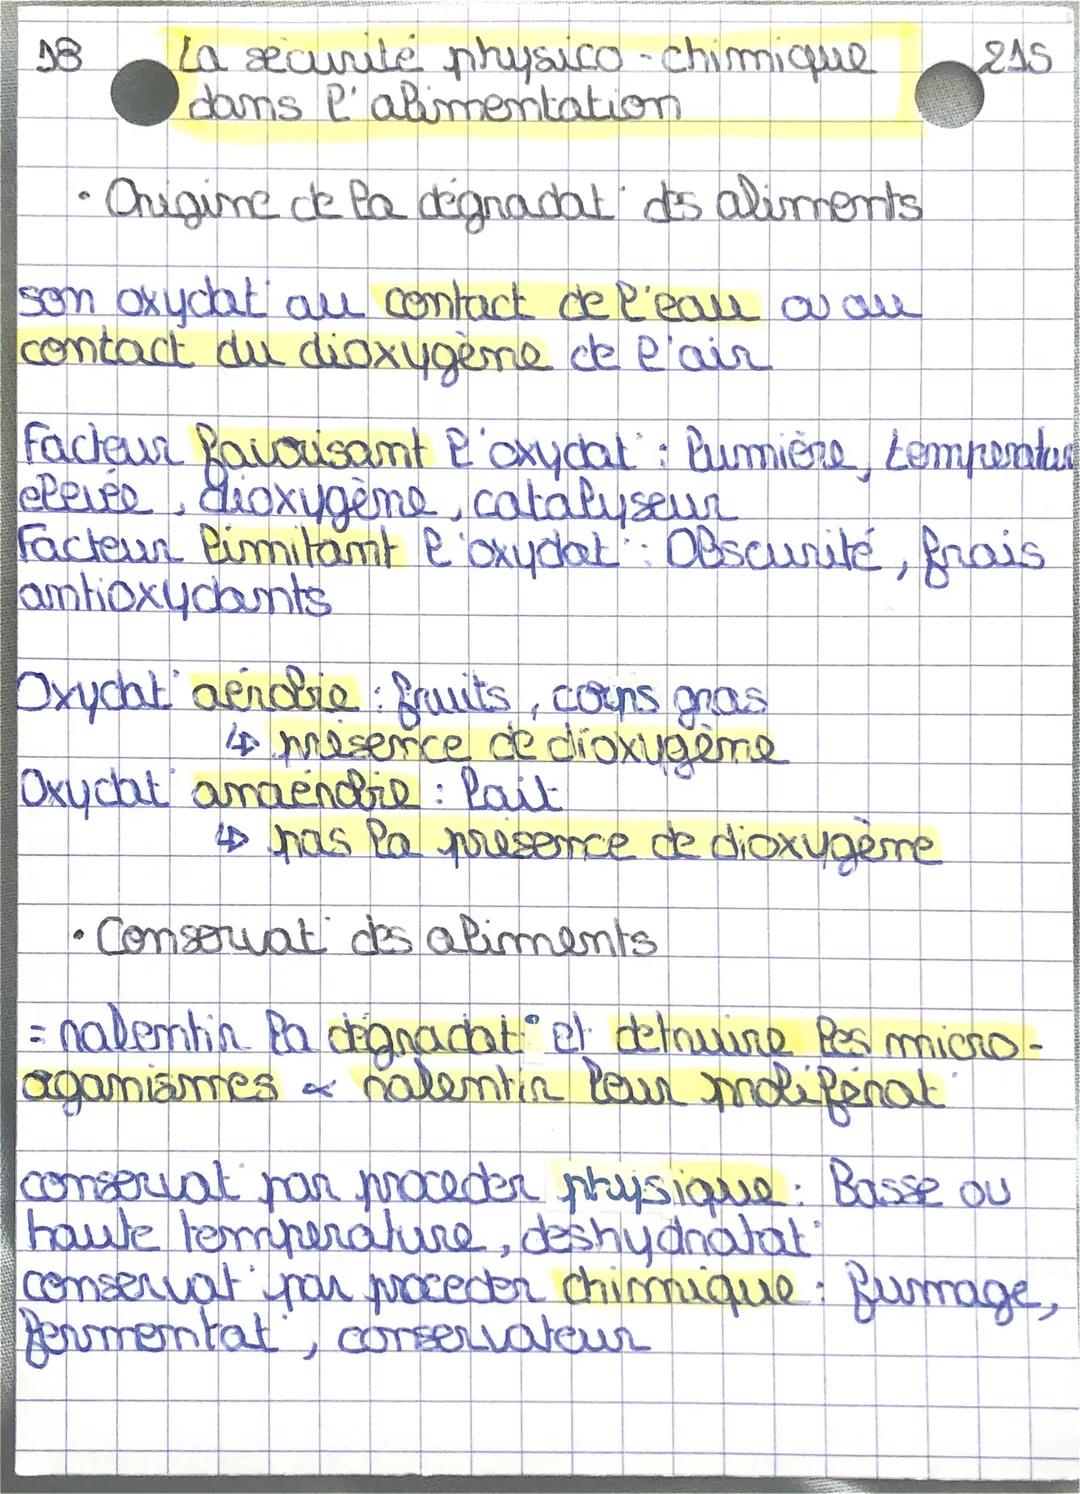 18 La sécurité physico-chimique 21S
dans l'alimentation
• Origine de la dégradat° des aliments
son oxydat° au contact de l'eau ou au
contact du dioxygène de l'air
Facteur favorisant l'oxydat° : lumière, temperatur
elevée, dioxygène, catalyseur
Facteur limitant l'oxydat° : Obscurité, frais
antioxydants
Oxydat° aérobie : fruits, corps gras
↳ présence de dioxygène
Oxydat° anaérobie : lait
↳ pas la présence de dioxygène
• Conservat° des aliments
= ralentir la dégradat° et detruire les micro-
oganismes & ralentir leur proliférat°
conservat° par proceder physique : Basse ou
haute temperature, deshydratat°
conservat° par proceder chimique : fumage,
fermentat°, conservateur